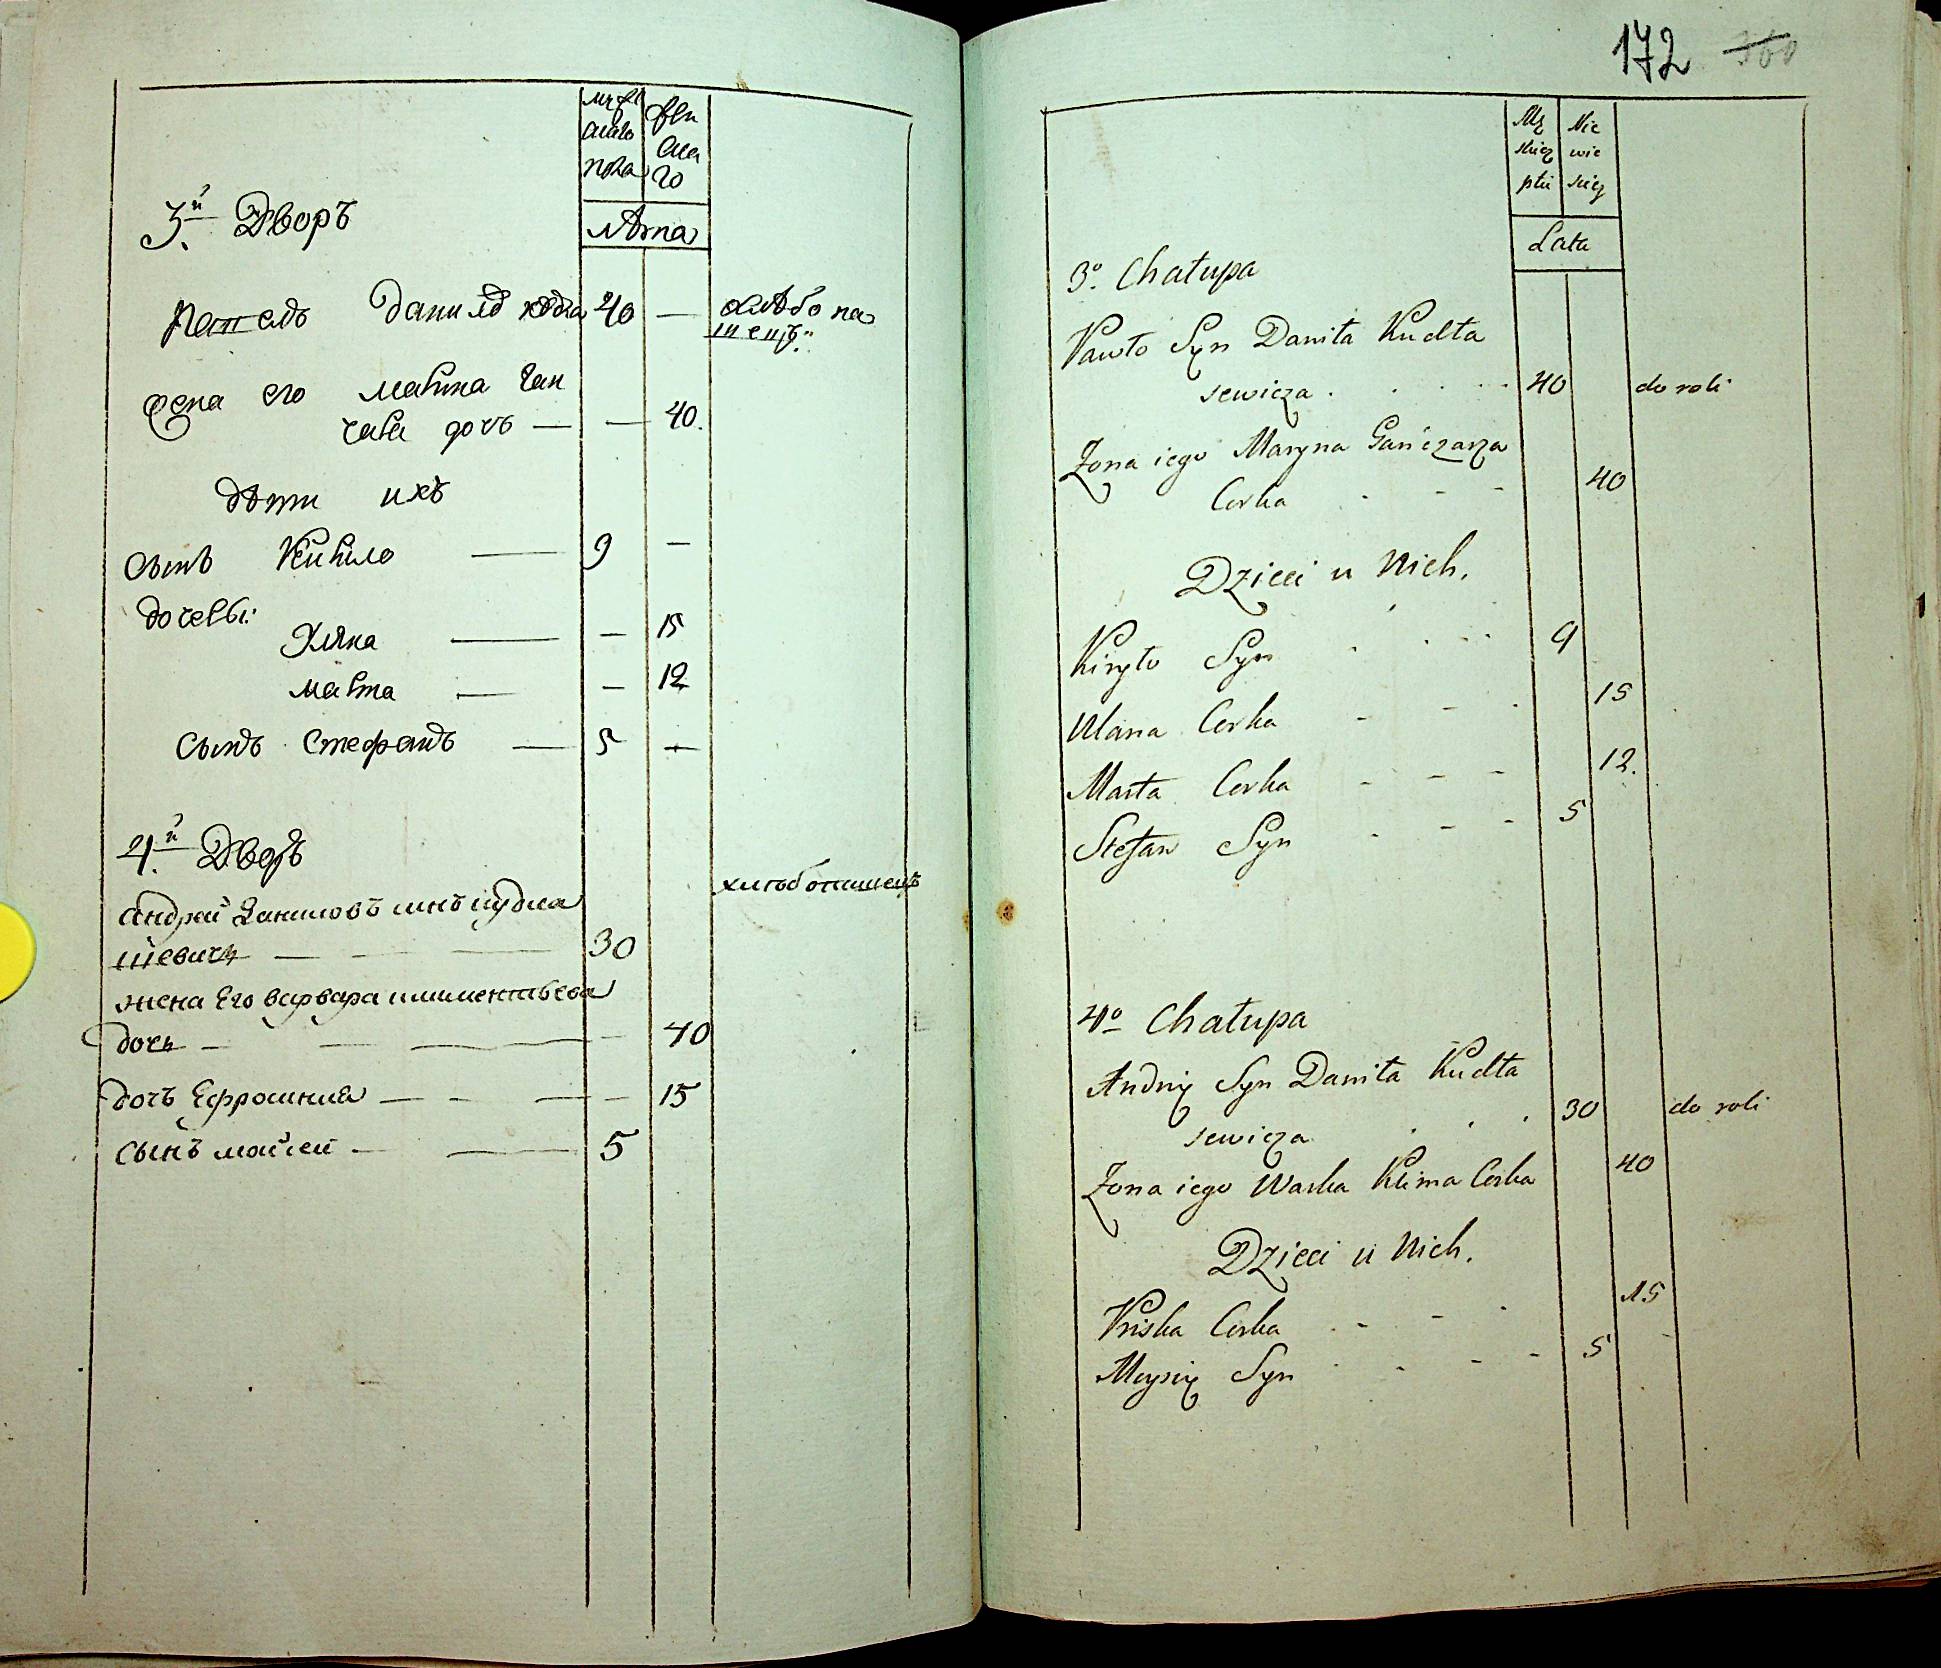 172 360
мужескаго пола
женскаго
Лѣта
3.й Дворъ
Павелъ Данилъ 40 — хлѣбопа
шецъ:
жена его Марта Ган
чара дочь — — 40.
дѣти ихъ
сынъ Кирило — 9 —
дочеры:
Уляна — — 15
Марта — — 12
сынъ Стефанъ — 5 —
4.й Дворъ
хлѣбопашецъ
Андрей Даниловъ сынъ Кудла
шевичъ — — — 30
жена Его варвара климентьева
дочь — — — — 40
дочъ Ефросиния — — — — 15
сынъ мойсей — — 5
Mę Nie
skiey wie
płci skiey
Lata
3o. Chałupa
Pawło Syn Daniła Kudła
sewicza . . . . 40 do roli
Żona iego Maryna Gańczarza
Corka . - - 40
Dzieci u Nich.
Kiryło Syn . . . . 9
Ulana Corka - - . 15
Marta Corka - - - 12.
Stefan Syn - - - 5
4o Chałupa
Andriy Syn Daniła Kudła
sewicza . . . 30 do roli
Żona iego Warka Klima Corka 40
Dzieci u Nich.
Priska Corka . - - . 15
Moysiy Syn . - - - 5